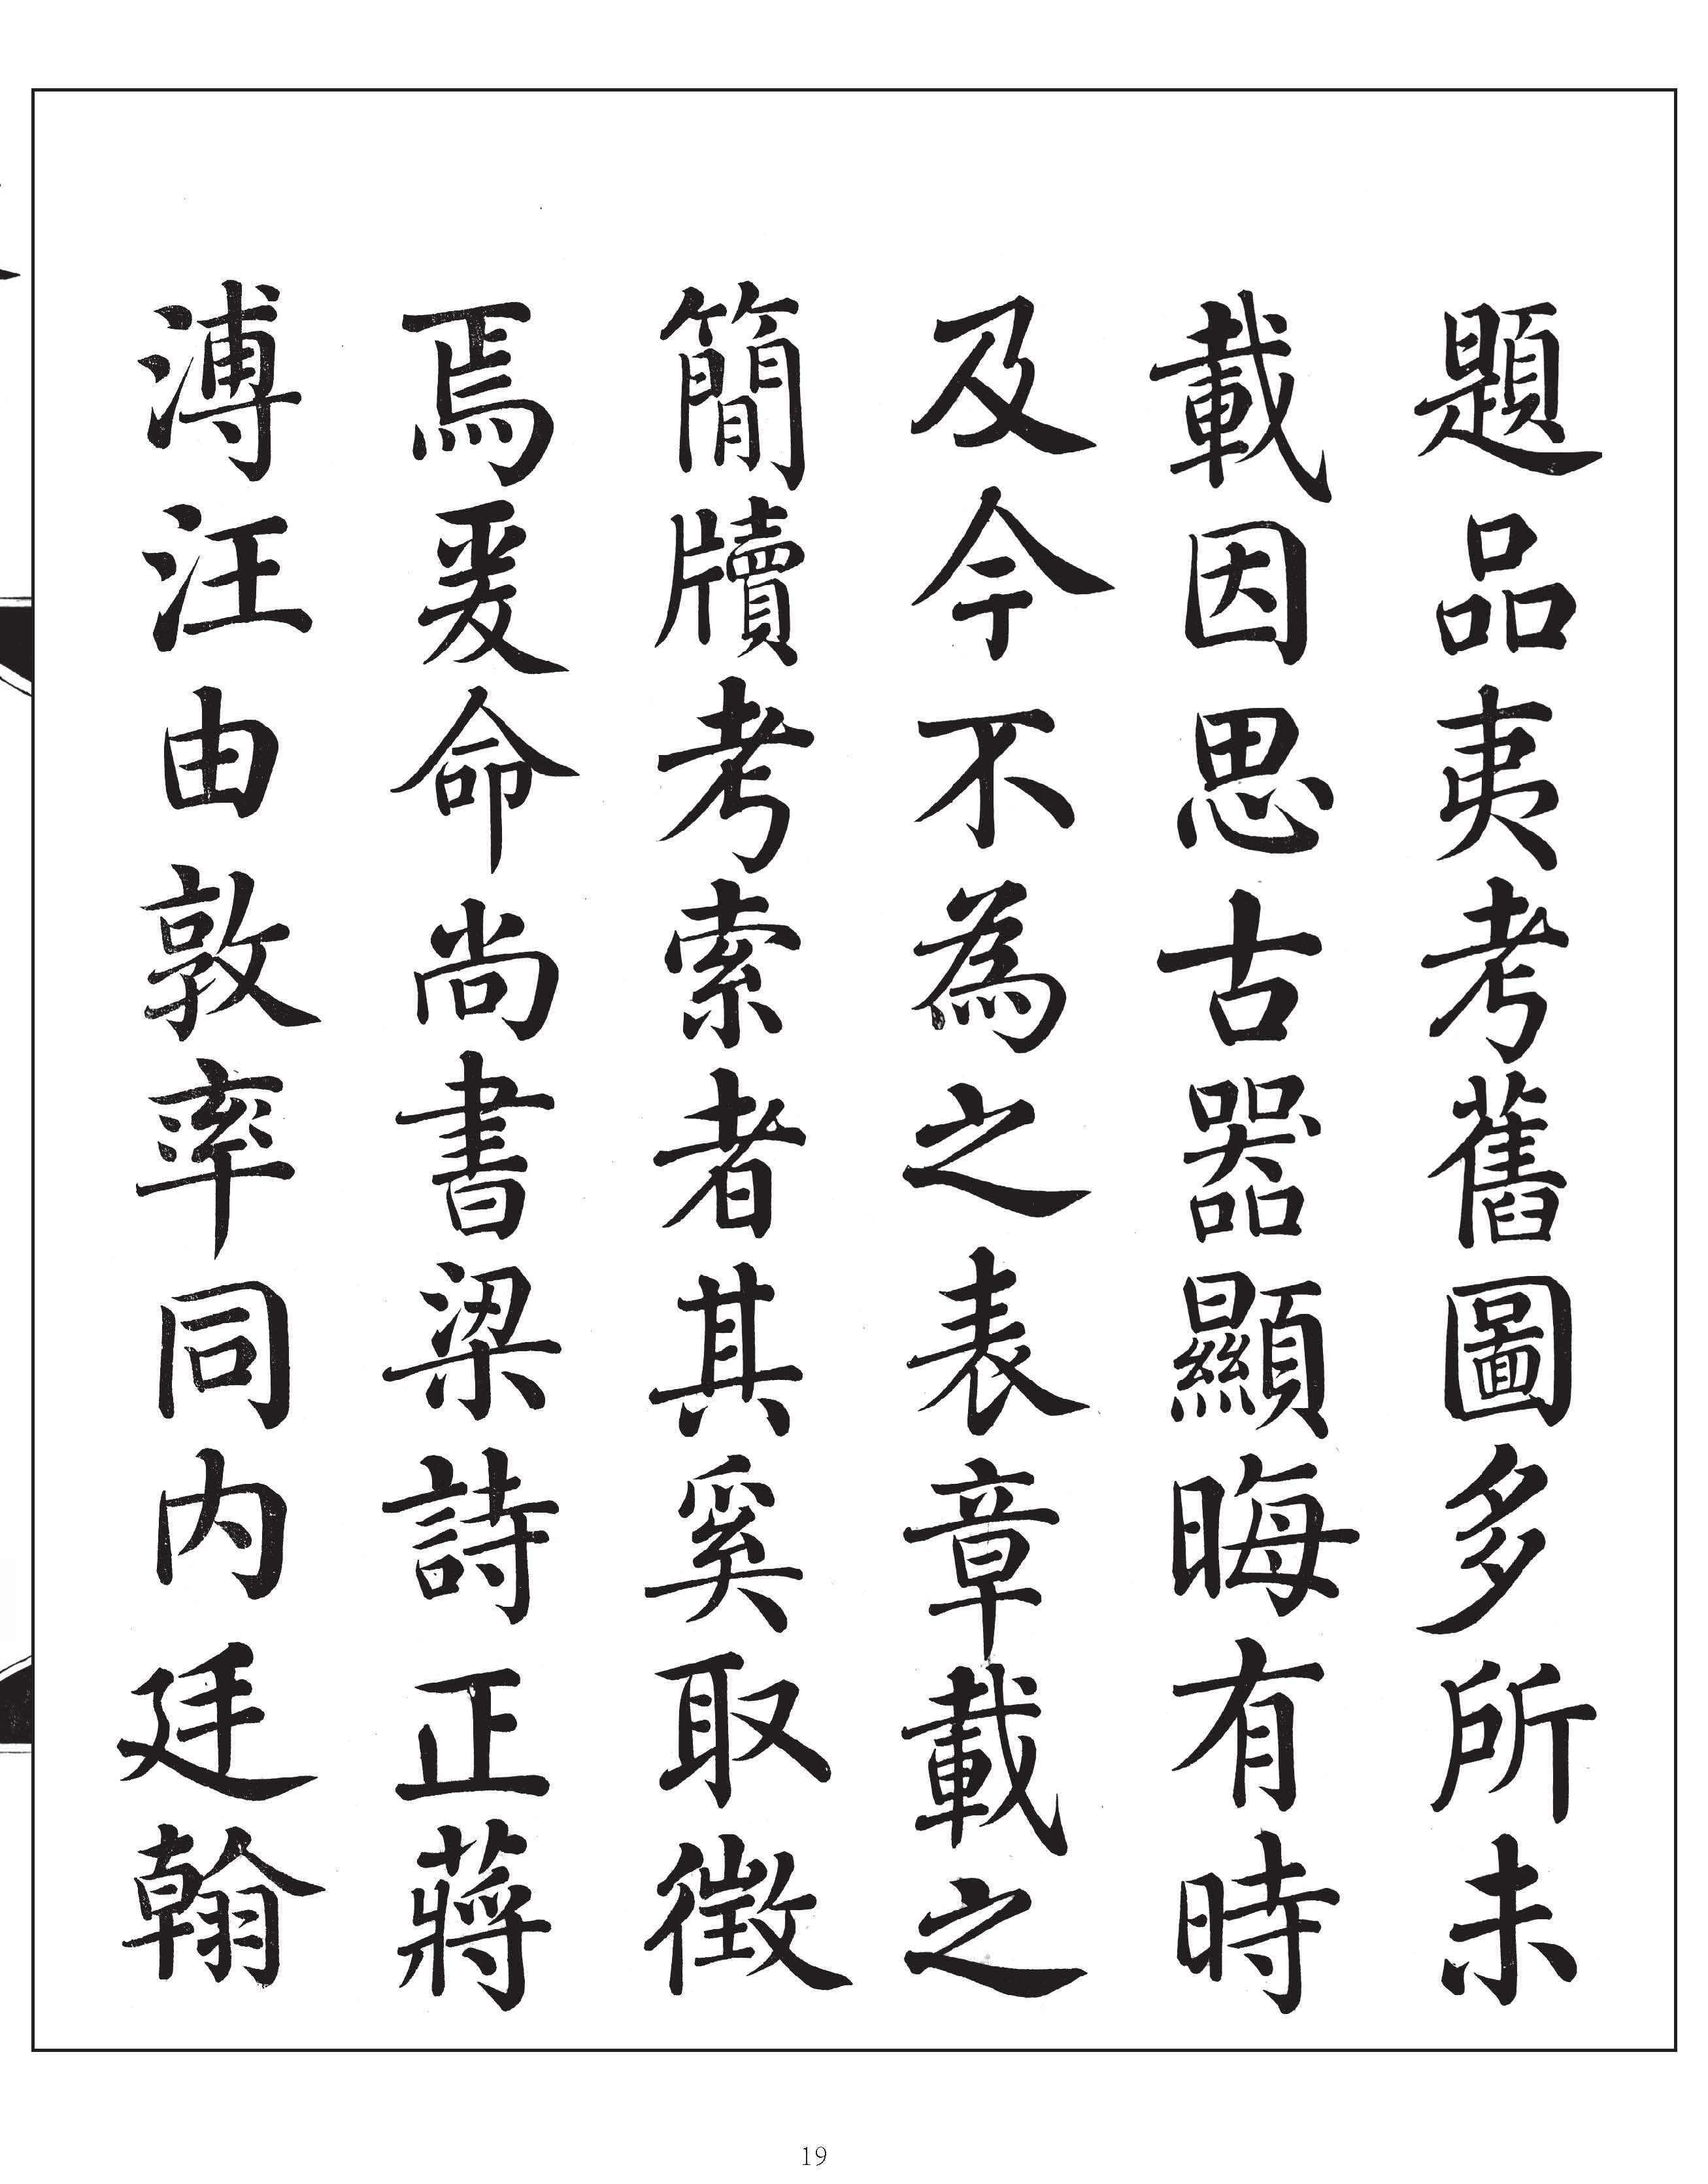 題品夷考舊圖多所未
載因思古器顯晦有時
及今不為之表章載之
簡牘考索者其奚取徵
焉爰命尚書梁詩正蔣
溥汪由敦率同内廷翰
19